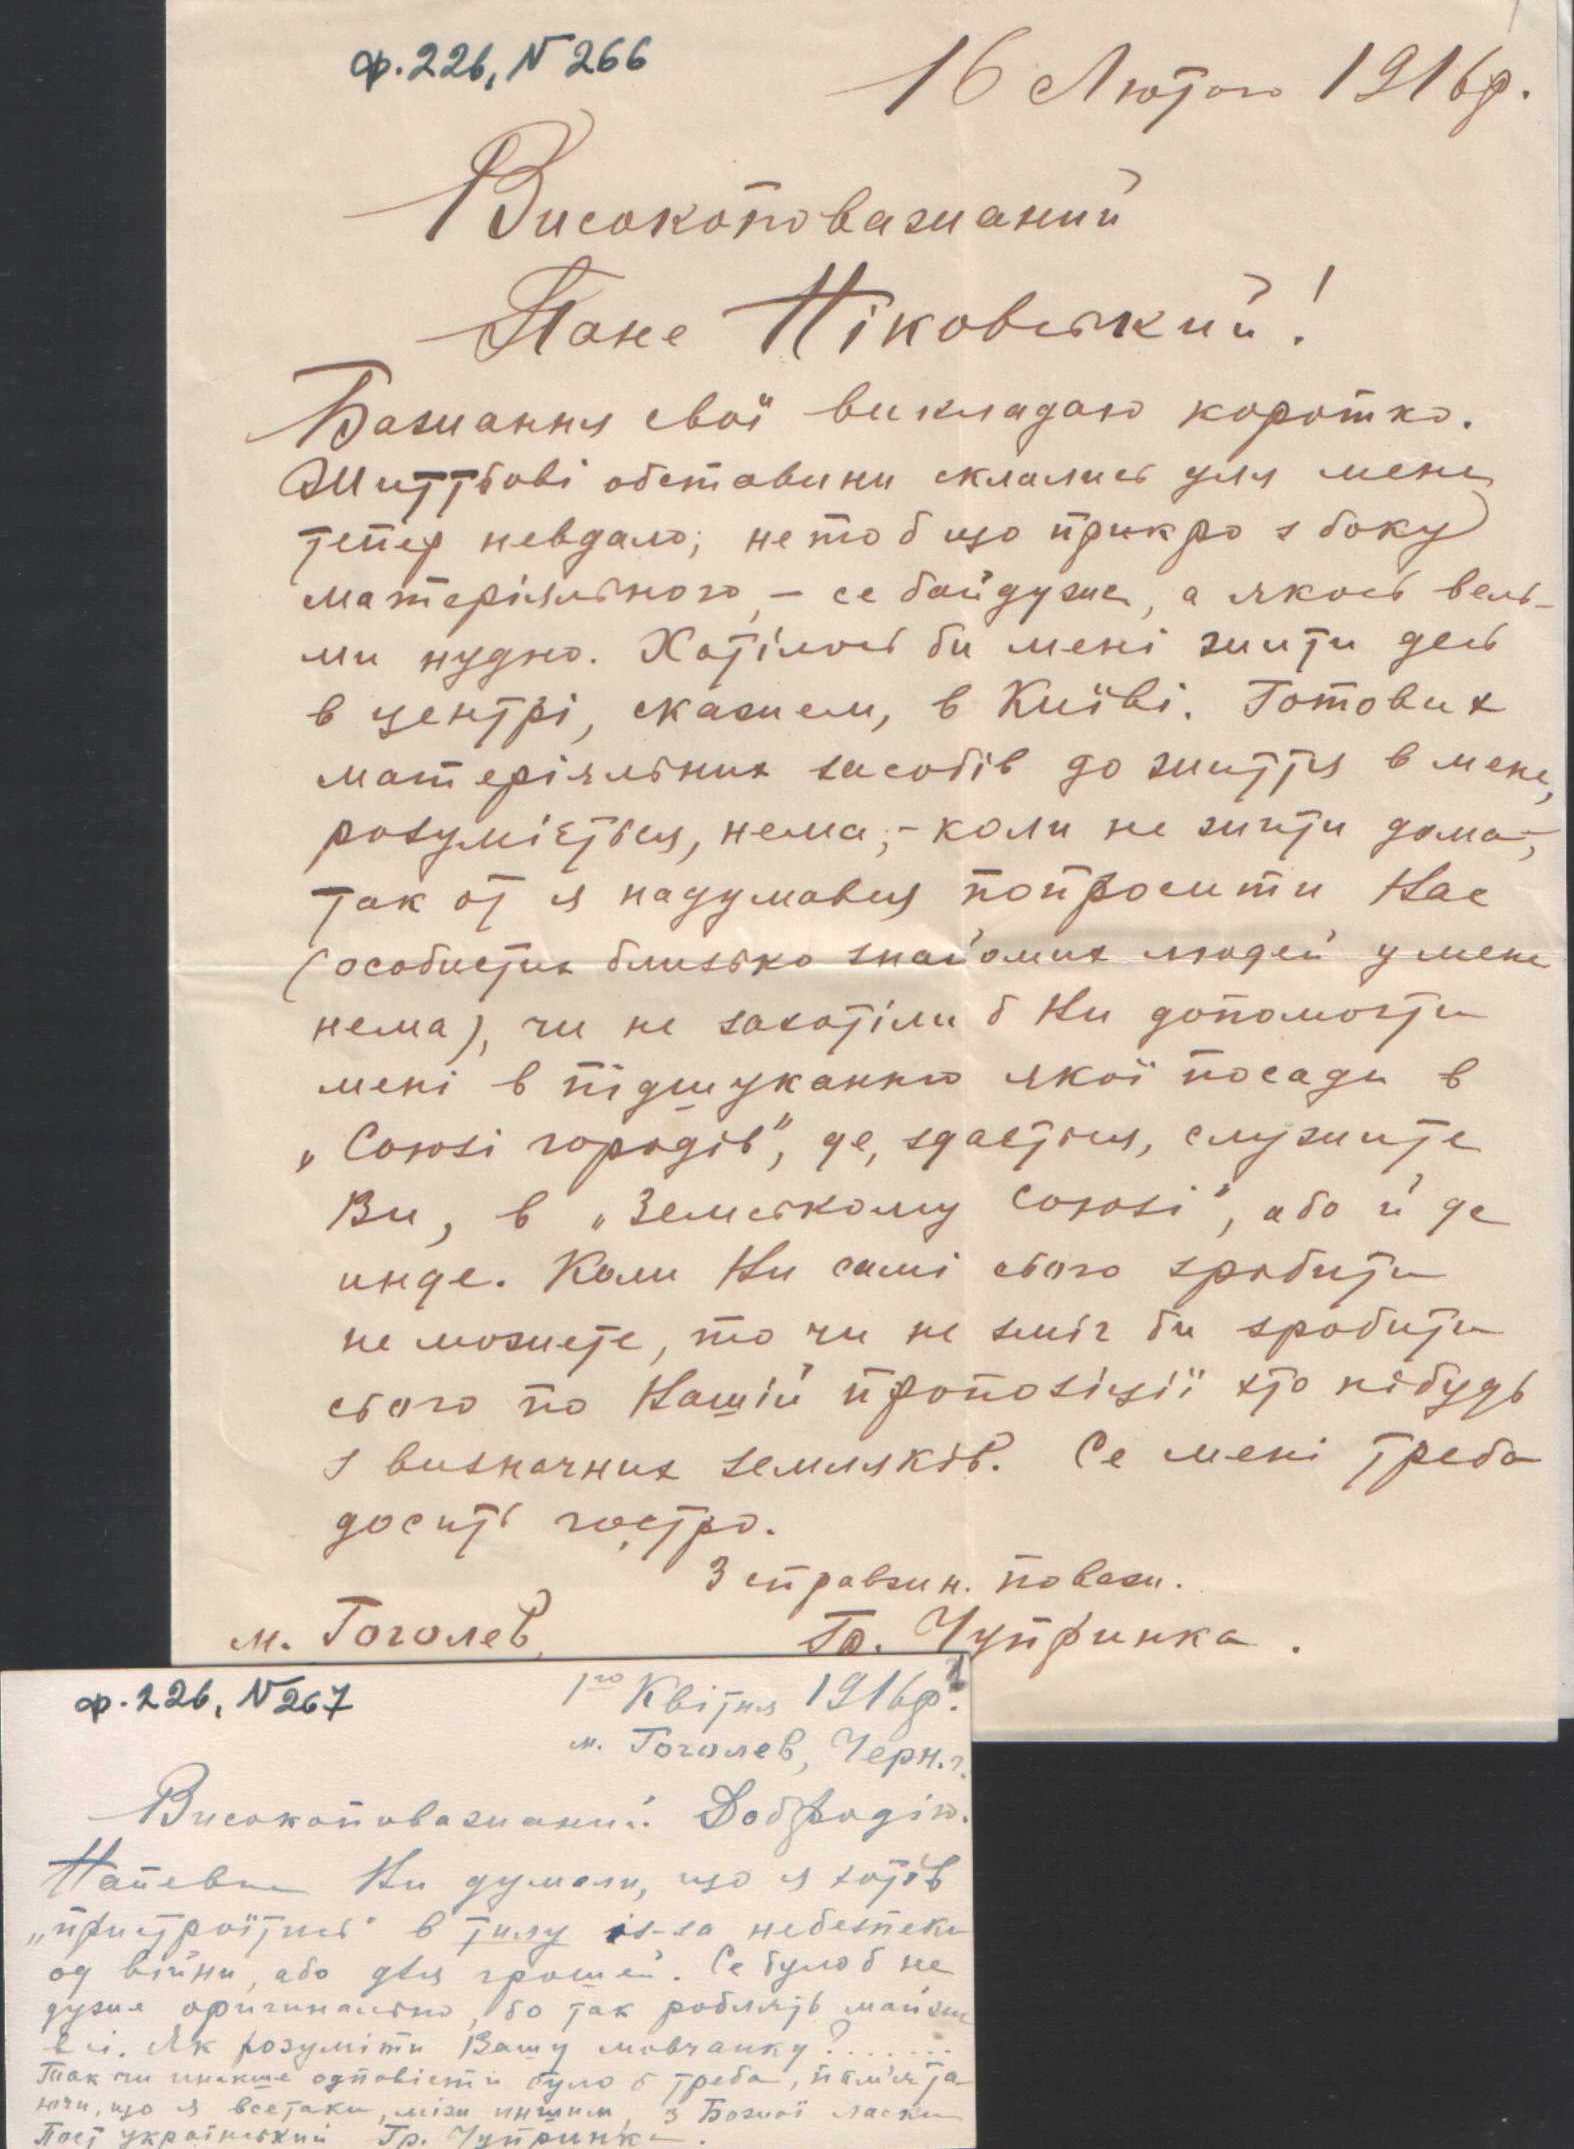 ф. 226, N 266
16 Лютого 1916 р.
Високоповажаний
Пане Ніковський!
Бажання свої викладаю коротко.
Життьові обставини склались для мене
тепер невдало; не то б що прикро з боку
матеріяльного, – се байдуже, а якось вель-
ми нудно. Хотілось би мені жити десь
в центрі, скажем, в Київі. Готових
матеріяльних засобів до життя в мене,
розуміється, нема, – коли не жити дома, –
так от я надумався попросити Вас
(особистих близько знайомих людей у мене
нема), чи не захотіли б Ви допомогти
мені в підшуканню якої посади в
„Союзі городів", де, здається, служите
Ви, в „Земському Союзі", або й де
инде. Коли Ви самі сього зробити
не можете, то чи не зміг би зробити
сього по Вашій пропозіції хто нібудь
з визначних земляків. Се мені треба
досить гостро.
З справжн. поваж.
м. Гоголев, Гр. Чупринка.
ф. 226, N 267
1го Квітня 1916 р.
м. Гоголев, Черн. г.
Високоповажаний Добродію.
Напевне Ви думали, що я хотів
„пристроїтись" в тилу із-за небезпеки
од війни, або для грошей. Се було б не
дуже оригинально, бо так роблять майже
всі. Як розуміти Вашу мовчанку?.......
Так чи инакше одповісти було б треба, пам'ята-
ючи, що я всетаки, між иншим, з Божої ласки
Поет український Гр. Чупринка.